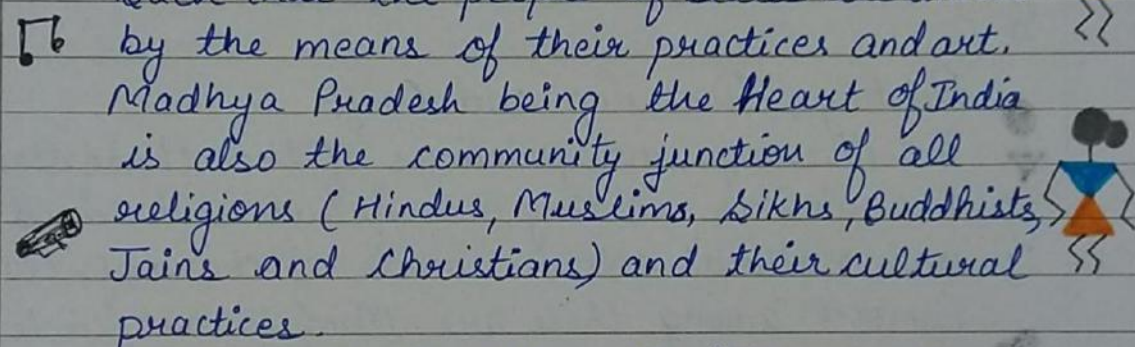 by the means of their practices and art.
Madhya Pradesh being the Heart of India
is also the community junction of all
religions (Hindus, Muslims, Sikhs, Buddhists,
Jains and Christians) and their cultural
practices.